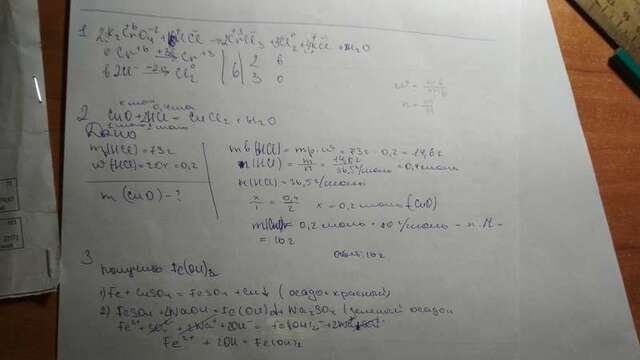 1 2K₂CrO₄ + 16HCl → 2CrCl₃ + 3Cl₂ + 4KCl + H₂O
Cr⁺⁶ +3e Cr⁺³ | | 2 в
2Cl⁻ -2e Cl₂⁰ | 6 | 3 о
n = m/M
2 CuO + 2HCl = CuCl₂ + H₂O
Дано
m(HCl) = 73г
w(HCl) = 20% = 0,2
m (CuO) - ?
m в (HCl) = mp · w = 73г · 0,2 = 14,6г
n(HCl) = m/M = 14,6г / 36,5г/моль = 0,4 моль
M(HCl) = 36,5г/моль
x/1 = 0,4/2 x = 0,2 моль (CuO)
m(CuO) = 0,2 моль · 80г/моль = n · M =
= 16г
Ответ: 16г
3 получить Fe(OH)₂
1) Fe + CuSO₄ = FeSO₄ + Cu↓ (осадок красный)
2) FeSO₄ + 2NaOH = Fe(OH)₂↓ + Na₂SO₄ (зеленый осадок
Fe²⁺ + SO₄²⁻ + 2Na⁺ + 2OH⁻ = Fe(OH)₂ + 2Na⁺
Fe²⁺ + 2OH = Fe(OH)₂